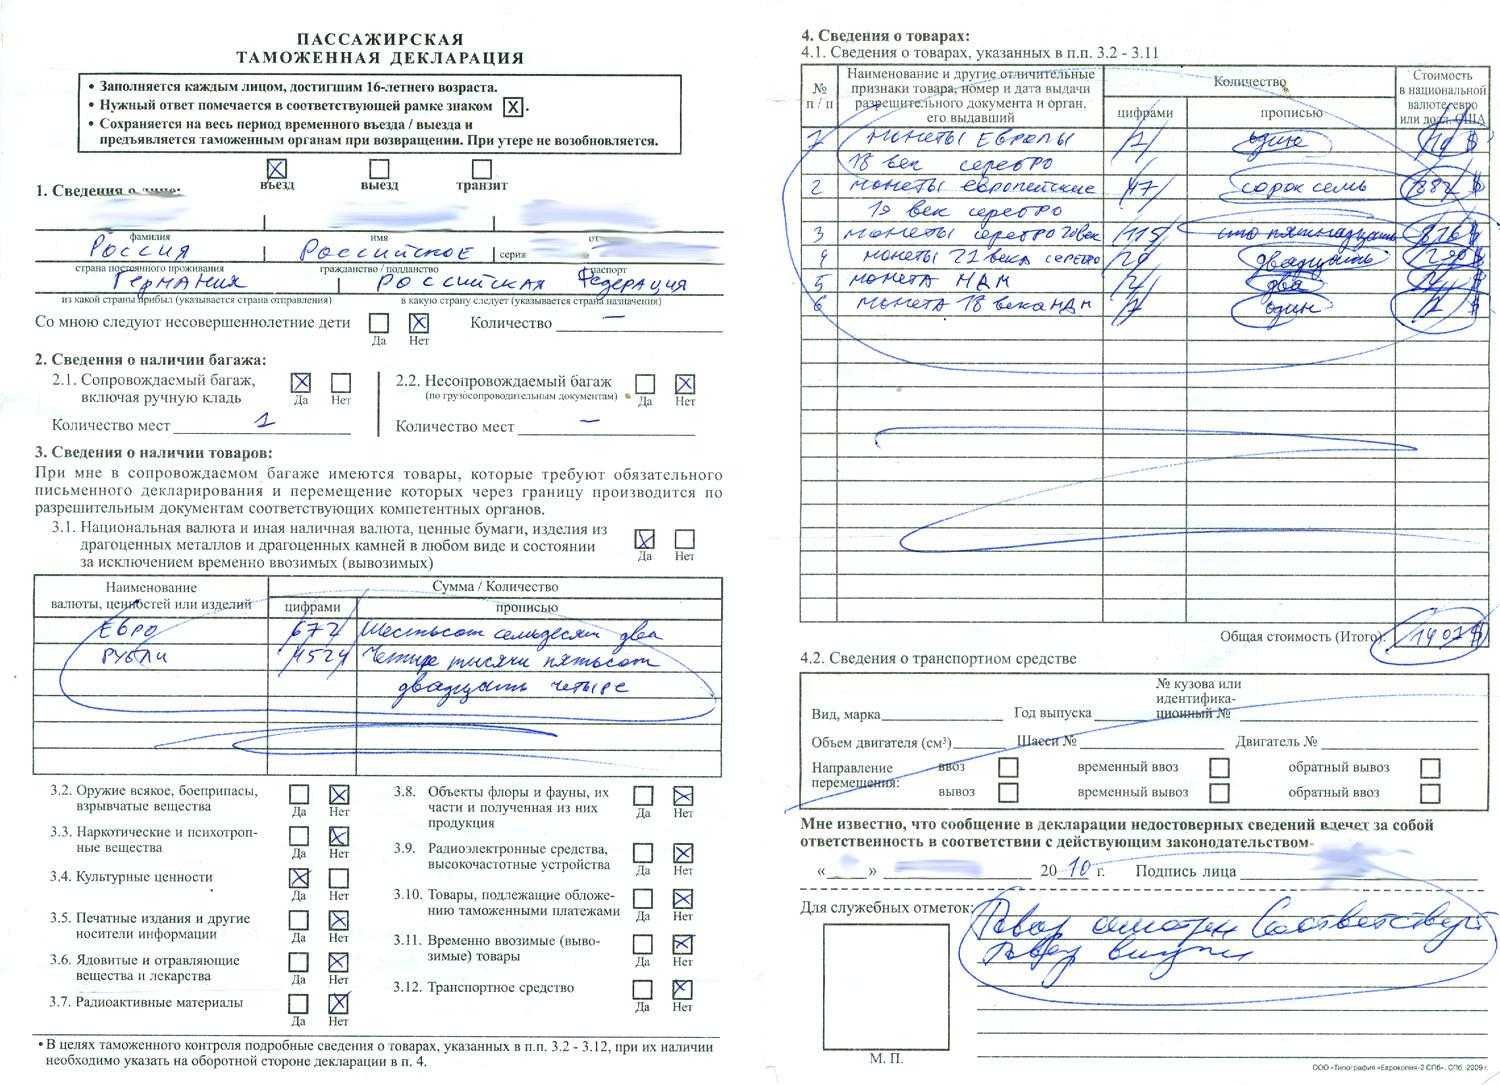 ПАССАЖИРСКАЯ
ТАМОЖЕННАЯ ДЕКЛАРАЦИЯ
• Заполняется каждым лицом, достигшим 16-летнего возраста.
• Нужный ответ помечается в соответствующей рамке знаком X.
• Сохраняется на весь период временного въезда / выезда и
предъявляется таможенным органам при возвращении. При утере не возобновляется.
въезд выезд транзит
1. Сведения о лице:
фамилия имя от
Россия Российское серия
страна постоянного проживания гражданство / подданство паспорт
Германия Российская Федерация
из какой страны прибыл (указывается страна отправления) в какую страну следует (указывается страна назначения)
Со мною следуют несовершеннолетние дети Да Нет Количество —
2. Сведения о наличии багажа:
2.1. Сопровождаемый багаж,
включая ручную кладь Да Нет
Количество мест 1
2.2. Несопровождаемый багаж
(по грузосопроводительным документам) Да Нет
Количество мест —
3. Сведения о наличии товаров:
При мне в сопровождаемом багаже имеются товары, которые требуют обязательного
письменного декларирования и перемещение которых через границу производится по
разрешительным документам соответствующих компетентных органов.
3.1. Национальная валюта и иная наличная валюта, ценные бумаги, изделия из
драгоценных металлов и драгоценных камней в любом виде и состоянии
за исключением временно ввозимых (вывозимых) Да Нет
Наименование
валюты, ценностей или изделий
Сумма / Количество
цифрами прописью
Евро 672 Шестьсот семьдесят два
Рубли 4524 Четыре тысячи пятьсот
двадцать четыре
3.2. Оружие всякое, боеприпасы,
взрывчатые вещества Да Нет
3.3. Наркотические и психотроп-
ные вещества Да Нет
3.4. Культурные ценности Да Нет
3.5. Печатные издания и другие
носители информации Да Нет
3.6. Ядовитые и отравляющие
вещества и лекарства Да Нет
3.7. Радиоактивные материалы Да Нет
3.8. Объекты флоры и фауны, их
части и полученная из них
продукция Да Нет
3.9. Радиоэлектронные средства,
высокочастотные устройства Да Нет
3.10. Товары, подлежащие обложе-
нию таможенными платежами Да Нет
3.11. Временно ввозимые (выво-
зимые) товары Да Нет
3.12. Транспортное средство Да Нет
• В целях таможенного контроля подробные сведения о товарах, указанных в п.п. 3.2 - 3.12, при их наличии
необходимо указать на оборотной стороне декларации в п. 4.
4. Сведения о товарах:
4.1. Сведения о товарах, указанных в п.п. 3.2 - 3.11
№
п / п
Наименование и другие отличительные
признаки товара, номер и дата выдачи
разрешительного документа и орган,
его выдавший
Количество
цифрами прописью
Стоимость
в национальной
валюте, евро
или долл. США
1 монеты Европы 1 один $
18 век серебро
2 монеты европейские 47 сорок семь 887 $
19 век серебро
3 монеты серебро 20 век 115 сто пятнадцать $
4 монеты 21 века серебро 20 двадцать $
5 монета НДМ 2 два $
6 монета 18 века НДМ 1 один $
Общая стоимость (Итого): 1407 $
4.2. Сведения о транспортном средстве
Вид, марка Год выпуска № кузова или
идентифика-
ционный №
Объем двигателя (см³) Шасси № Двигатель №
Направление
перемещения:
ввоз временный ввоз обратный вывоз
вывоз временный вывоз обратный ввоз
Мне известно, что сообщение в декларации недостоверных сведений влечет за собой
ответственность в соответствии с действующим законодательством
« » 2010 г. Подпись лица
Для служебных отметок: Товар смотрен Соответствует
Товар
М. П.
ООО «Типография «Еврокопия-2 СПб». СПб. 2009 г.